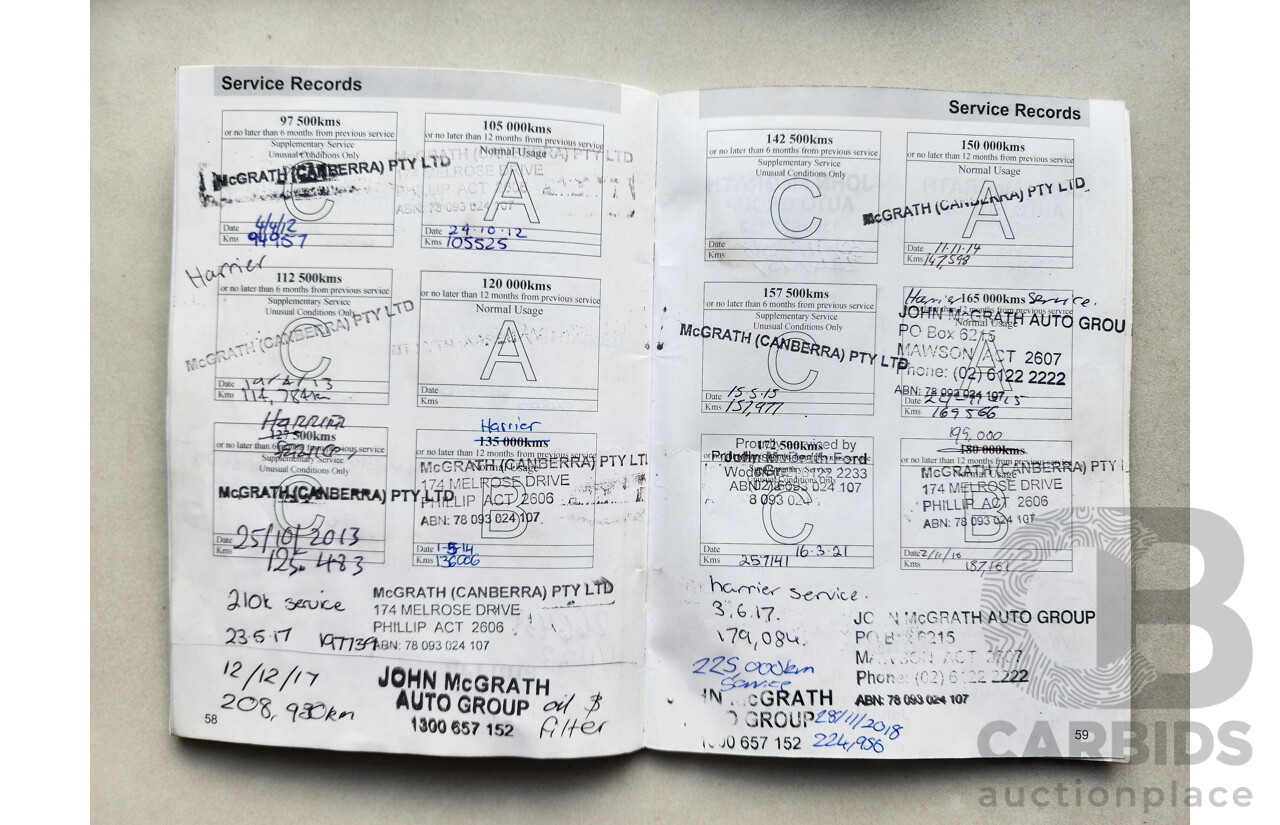 Service Records
97 500kms
or no later than 6 months from previous service
Supplementary Service
Unusual Conditions Only
McGRATH (CANBERRA) PTY LTD
C
Date 4/4/12
Kms 94957
105 000kms
or no later than 12 months from previous service
Normal Usage
McGRATH (CANBERRA) PTY LTD
174 MELROSE DRIVE
PHILLIP ACT 2606
ABN: 78 093 024 107
A
Date 24.10.12
Kms 105525
Harrier
112 500kms
or no later than 6 months from previous service
Supplementary Service
Unusual Conditions Only
McGRATH (CANBERRA) PTY LTD
C
Date
Kms
120 000kms
or no later than 12 months from previous service
Normal Usage
A
Date
Kms
Harrier
127 500kms
or no later than 6 months from previous service
Supplementary Service
Unusual Conditions Only
McGRATH (CANBERRA) PTY LTD
C
Date 25/10/2013
Kms 125.483
Harrier
135 000kms
or no later than 12 months from previous service
Normal Usage
McGRATH (CANBERRA) PTY LTD
174 MELROSE DRIVE
PHILLIP ACT 2606
ABN: 78 093 024 107
B
Date 1-5-14
Kms 136006
210k service
23.5.17 197739
McGRATH (CANBERRA) PTY LTD
174 MELROSE DRIVE
PHILLIP ACT 2606
ABN: 78 093 024 107
12/12/17
208,930km
JOHN McGRATH
AUTO GROUP
1300 657 152
oil $
filter
58
Service Records
142 500kms
or no later than 6 months from previous service
Supplementary Service
Unusual Conditions Only
C
Date
Kms
150 000kms
or no later than 12 months from previous service
Normal Usage
McGRATH (CANBERRA) PTY LTD
A
Date 11.11.14
Kms 147,598
157 500kms
or no later than 6 months from previous service
Supplementary Service
Unusual Conditions Only
McGRATH (CANBERRA) PTY LTD
C
Date 15.5.15
Kms 157,977
Harrier 165 000kms Service.
Normal Usage
JOHN McGRATH AUTO GROU
PO Box 6215
MAWSON ACT 2607
Phone: (02) 6122 2222
ABN: 78 093 024 107
A
Date
Kms 169566
172 500kms
Unusual Conditions Only
C
Date 16.3.21
Kms 257141
195,000
180 000kms
or no later than 12 months from previous service
Normal Usage
McGRATH (CANBERRA) PTY
174 MELROSE DRIVE
PHILLIP ACT 2606
ABN: 78 093 024 107
B
Date
Kms
harrier service.
3.6.17.
179,084.
JOHN McGRATH AUTO GROUP
PO Box 6215
MAWSON ACT 2607
Phone: (02) 6122 2222
ABN: 78 093 024 107
225,000km
Service
HN McGRATH
O GROUP 28/11/2018
00 657 152 224,986
59
CARBIDS
auctionplace